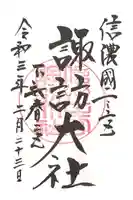 信濃國一之宮
諏訪大社
下社春宮
令和三年二月二十三日